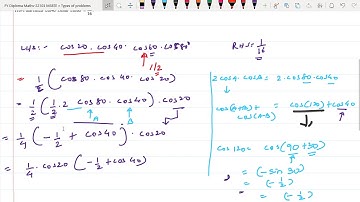 FY Diploma Maths-22103 UNIT-2 Types of problems
16
LHS:- cos20 . cos40 . cos60 . cos80
R.H.S = 1/16
1/2
= 1/2 (cos80 . cos40 . cos20)
= 1/2 (1/2 . 2 cos80 . cos40) . cos20
A B
= 1/4 (-1/2 + cos40) . cos20
= 1/4 . cos20 (-1/2 + cos40)
2 cosA . cosB = 2 . cos80 . cos40
cos(A+B) + cos(A-B) = cos(120) + cos40
cos120 = cos(90+30)
= (-sin 30)
= (-1/2)
= (-1/2)